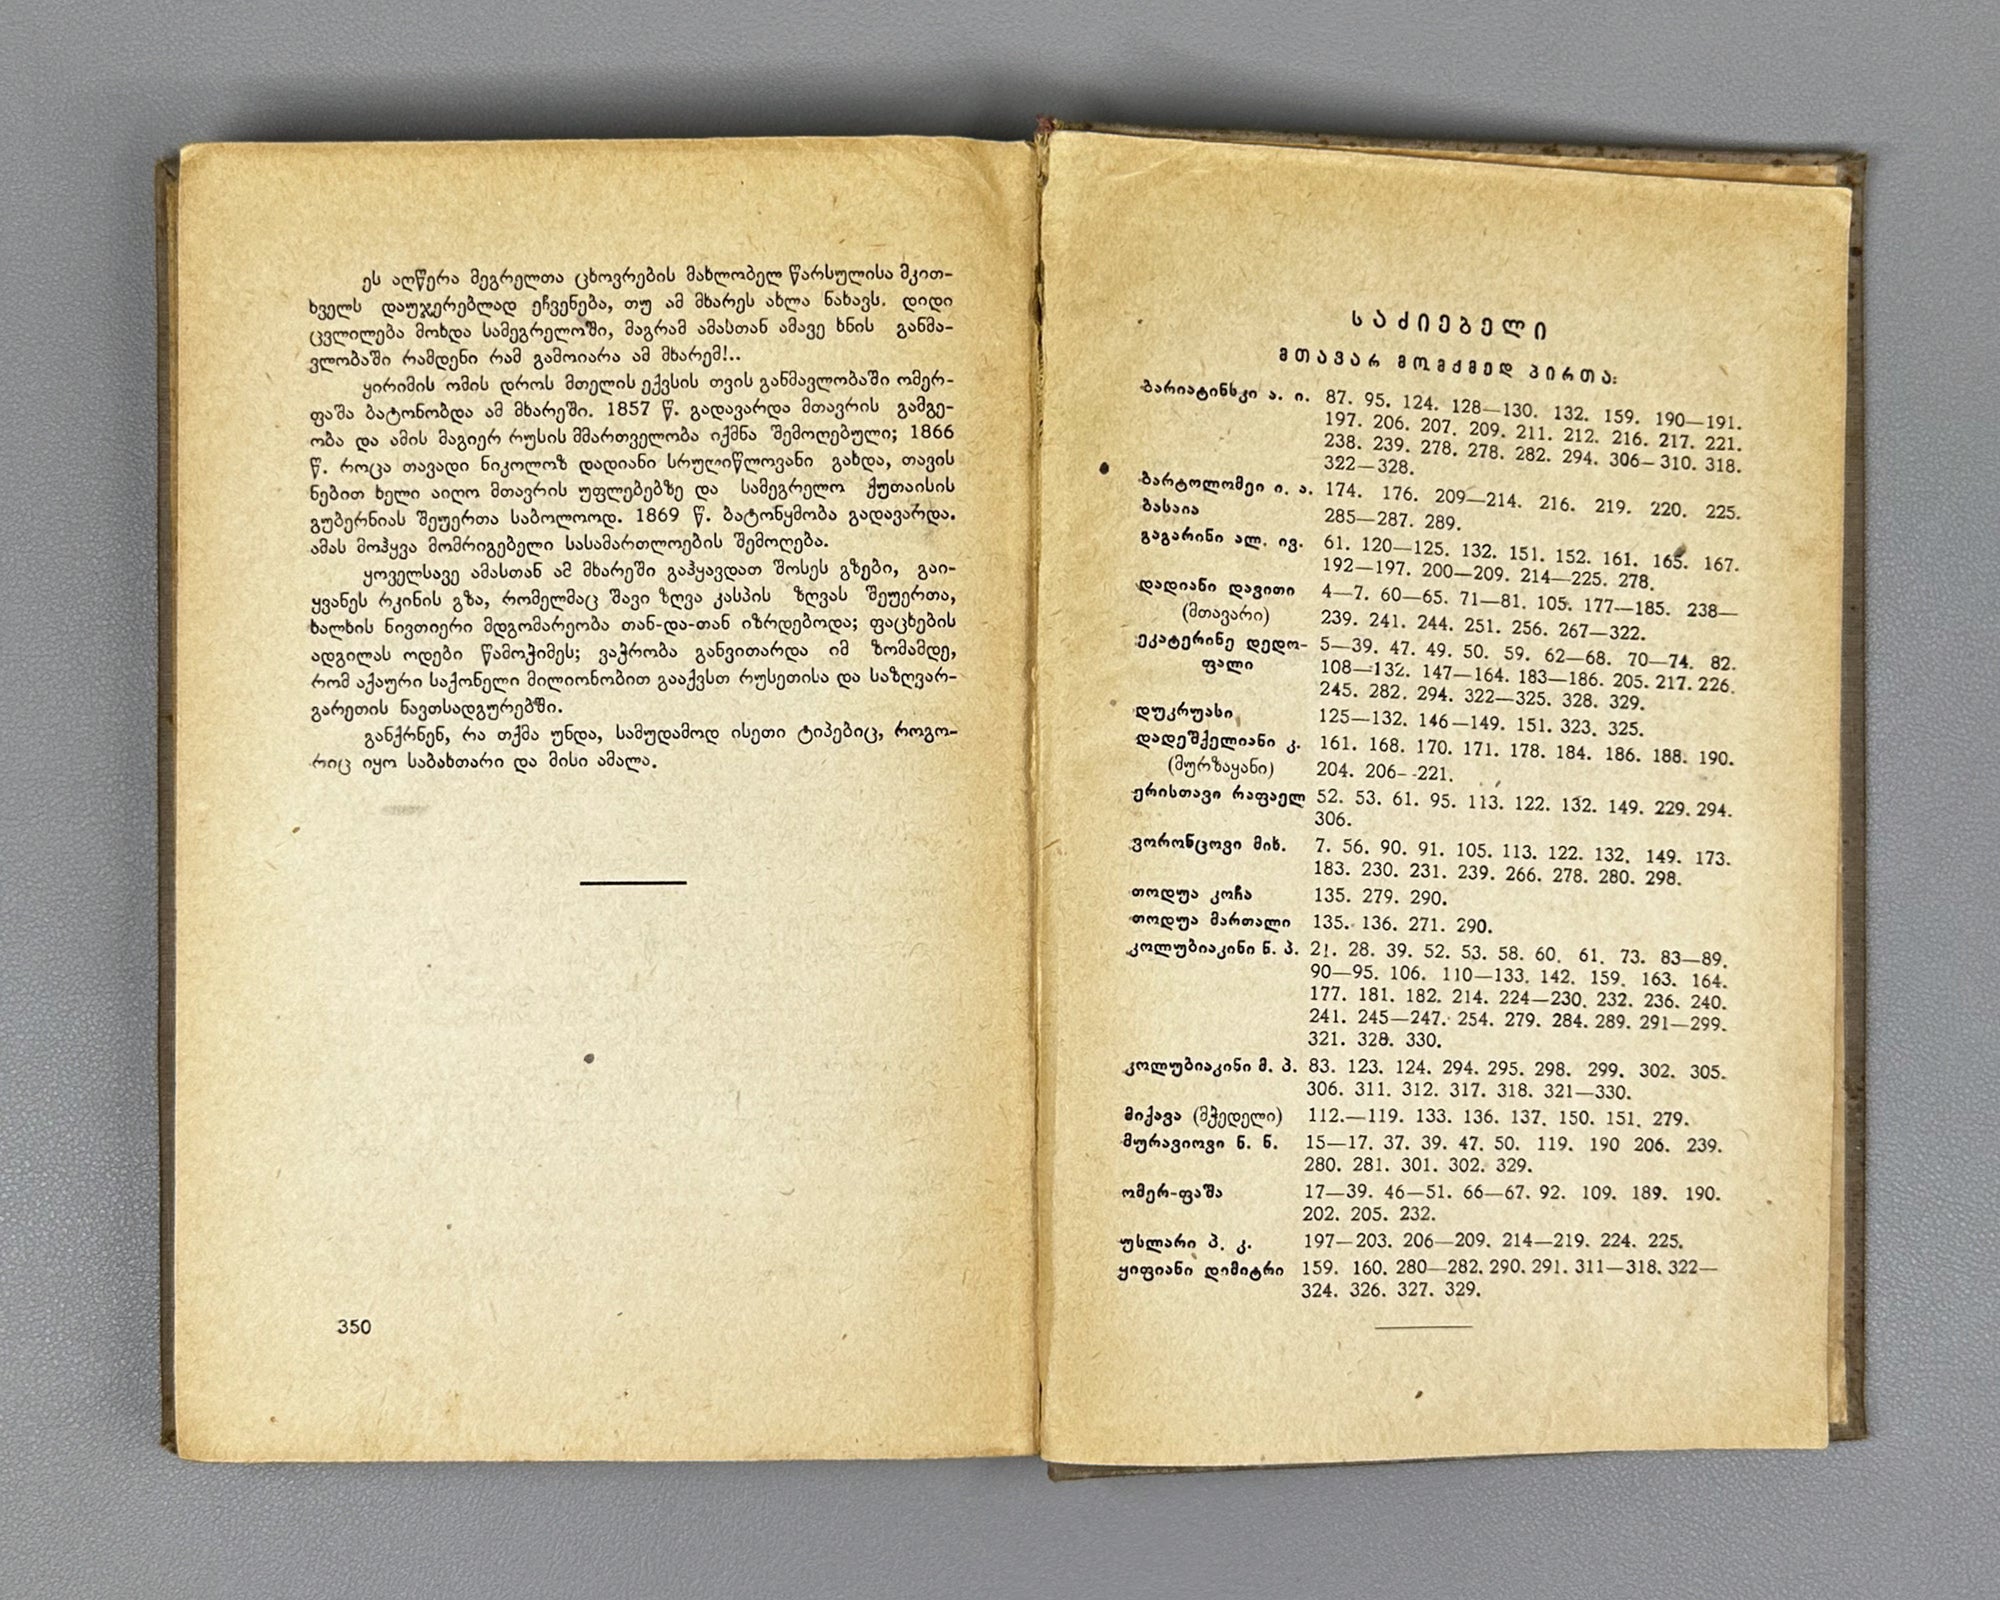 ეს აღწერა მეგრელთა ცხოვრების მახლობელ წარსულისა მკით-
ხველს დაუჯერებლად ეჩვენება, თუ ამ მხარეს ახლა ნახავს. დიდი
ცვლილება მოხდა სამეგრელოში, მაგრამ ამასთან ამავე ხნის განმა-
ვლობაში რამდენი რამ გამოიარა ამ მხარემ!..
ყირიმის ომის დროს მთელის ექვსის თვის განმავლობაში ომერ-
ფაშა ბატონობდა ამ მხარეში. 1857 წ. გადავარდა მთავრის გამგე-
ობა და ამის მაგიერ რუსის მმართველობა იქმნა შემოღებული; 1866
წ. როცა თავადი ნიკოლოზ დადიანი სრულიწლოვანი გახდა, თავის
ნებით ხელი აიღო მთავრის უფლებებზე და სამეგრელო ქუთაისის
გუბერნიას შეუერთა საბოლოოდ. 1869 წ. ბატონყმობა გადავარდა.
ამას მოჰყვა მომრიგებელი სასამართლოების შემოღება.
ყოველსავე ამასთან ამ მხარეში გაჰყავდათ შოსეს გზები, გაი-
ყვანეს რკინის გზა, რომელმაც შავი ზღვა კასპის ზღვას შეუერთა,
ხალხის ნივთიერი მდგომარეობა თან-და-თან იზრდებოდა; ფაცხების
ადგილას ოდები წამოჭიმეს; ვაჭრობა განვითარდა იმ ზომამდე,
რომ აქაური საქონელი მილიონობით გააქვსთ რუსეთისა და საზღვარ-
გარეთის ნავთსადგურებში.
განქრნენ, რა თქმა უნდა, სამუდამოდ ისეთი ტიპებიც, როგო-
რიც იყო საბახთარი და მისი ამალა.
350
საძიებელი
მთავარ მომქმედ პირთა:
ბარიატინსკი ა. ი. 87. 95. 124. 128—130. 132. 159. 190—191.
197. 206. 207. 209. 211. 212. 216. 217. 221.
238. 239. 278. 278. 282. 294. 306—310. 318.
322—328.
ბარტოლომეი ი. ა. 174. 176. 209—214. 216. 219. 220. 225.
ბასაია 285—287. 289.
გაგარინი ალ. ივ. 61. 120—125. 132. 151. 152. 161. 165. 167.
192—197. 200—209. 214—225. 278.
დადიანი დავითი 4—7. 60—65. 71—81. 105. 177—185. 238—
(მთავარი) 239. 241. 244. 251. 256. 267—322.
ეკატერინე დედო- 5—39. 47. 49. 50. 59. 62—68. 70—74. 82.
ფალი 108—132. 147—164. 183—186. 205. 217. 226.
245. 282. 294. 322—325. 328. 329.
დუკრუასი 125—132. 146—149. 151. 323. 325.
დადეშქელიანი კ. 161. 168. 170. 171. 178. 184. 186. 188. 190.
(მურზაყანი) 204. 206--221.
ერისთავი რაფაელ 52. 53. 61. 95. 113. 122. 132. 149. 229. 294.
306.
ვორონცოვი მიხ. 7. 56. 90. 91. 105. 113. 122. 132. 149. 173.
183. 230. 231. 239. 266. 278. 280. 298.
თოდუა კოჩა 135. 279. 290.
თოდუა მართალი 135. 136. 271. 290.
კოლუბიაკინი ნ. პ. 21. 28. 39. 52. 53. 58. 60. 61. 73. 83—89.
90—95. 106. 110—133. 142. 159. 163. 164.
177. 181. 182. 214. 224—230. 232. 236. 240.
241. 245—247. 254. 279. 284. 289. 291—299.
321. 328. 330.
კოლუბიაკინი მ. პ. 83. 123. 124. 294. 295. 298. 299. 302. 305.
306. 311. 312. 317. 318. 321—330.
მიქავა (მჭედელი) 112.—119. 133. 136. 137. 150. 151. 279.
მურავიოვი ნ. ნ. 15—17. 37. 39. 47. 50. 119. 190 206. 239.
280. 281. 301. 302. 329.
ომერ-ფაშა 17—39. 46—51. 66—67. 92. 109. 189. 190.
202. 205. 232.
უსლარი პ. კ. 197—203. 206—209. 214—219. 224. 225.
ყიფიანი დიმიტრი 159. 160. 280—282. 290. 291. 311—318. 322—
324. 326. 327. 329.